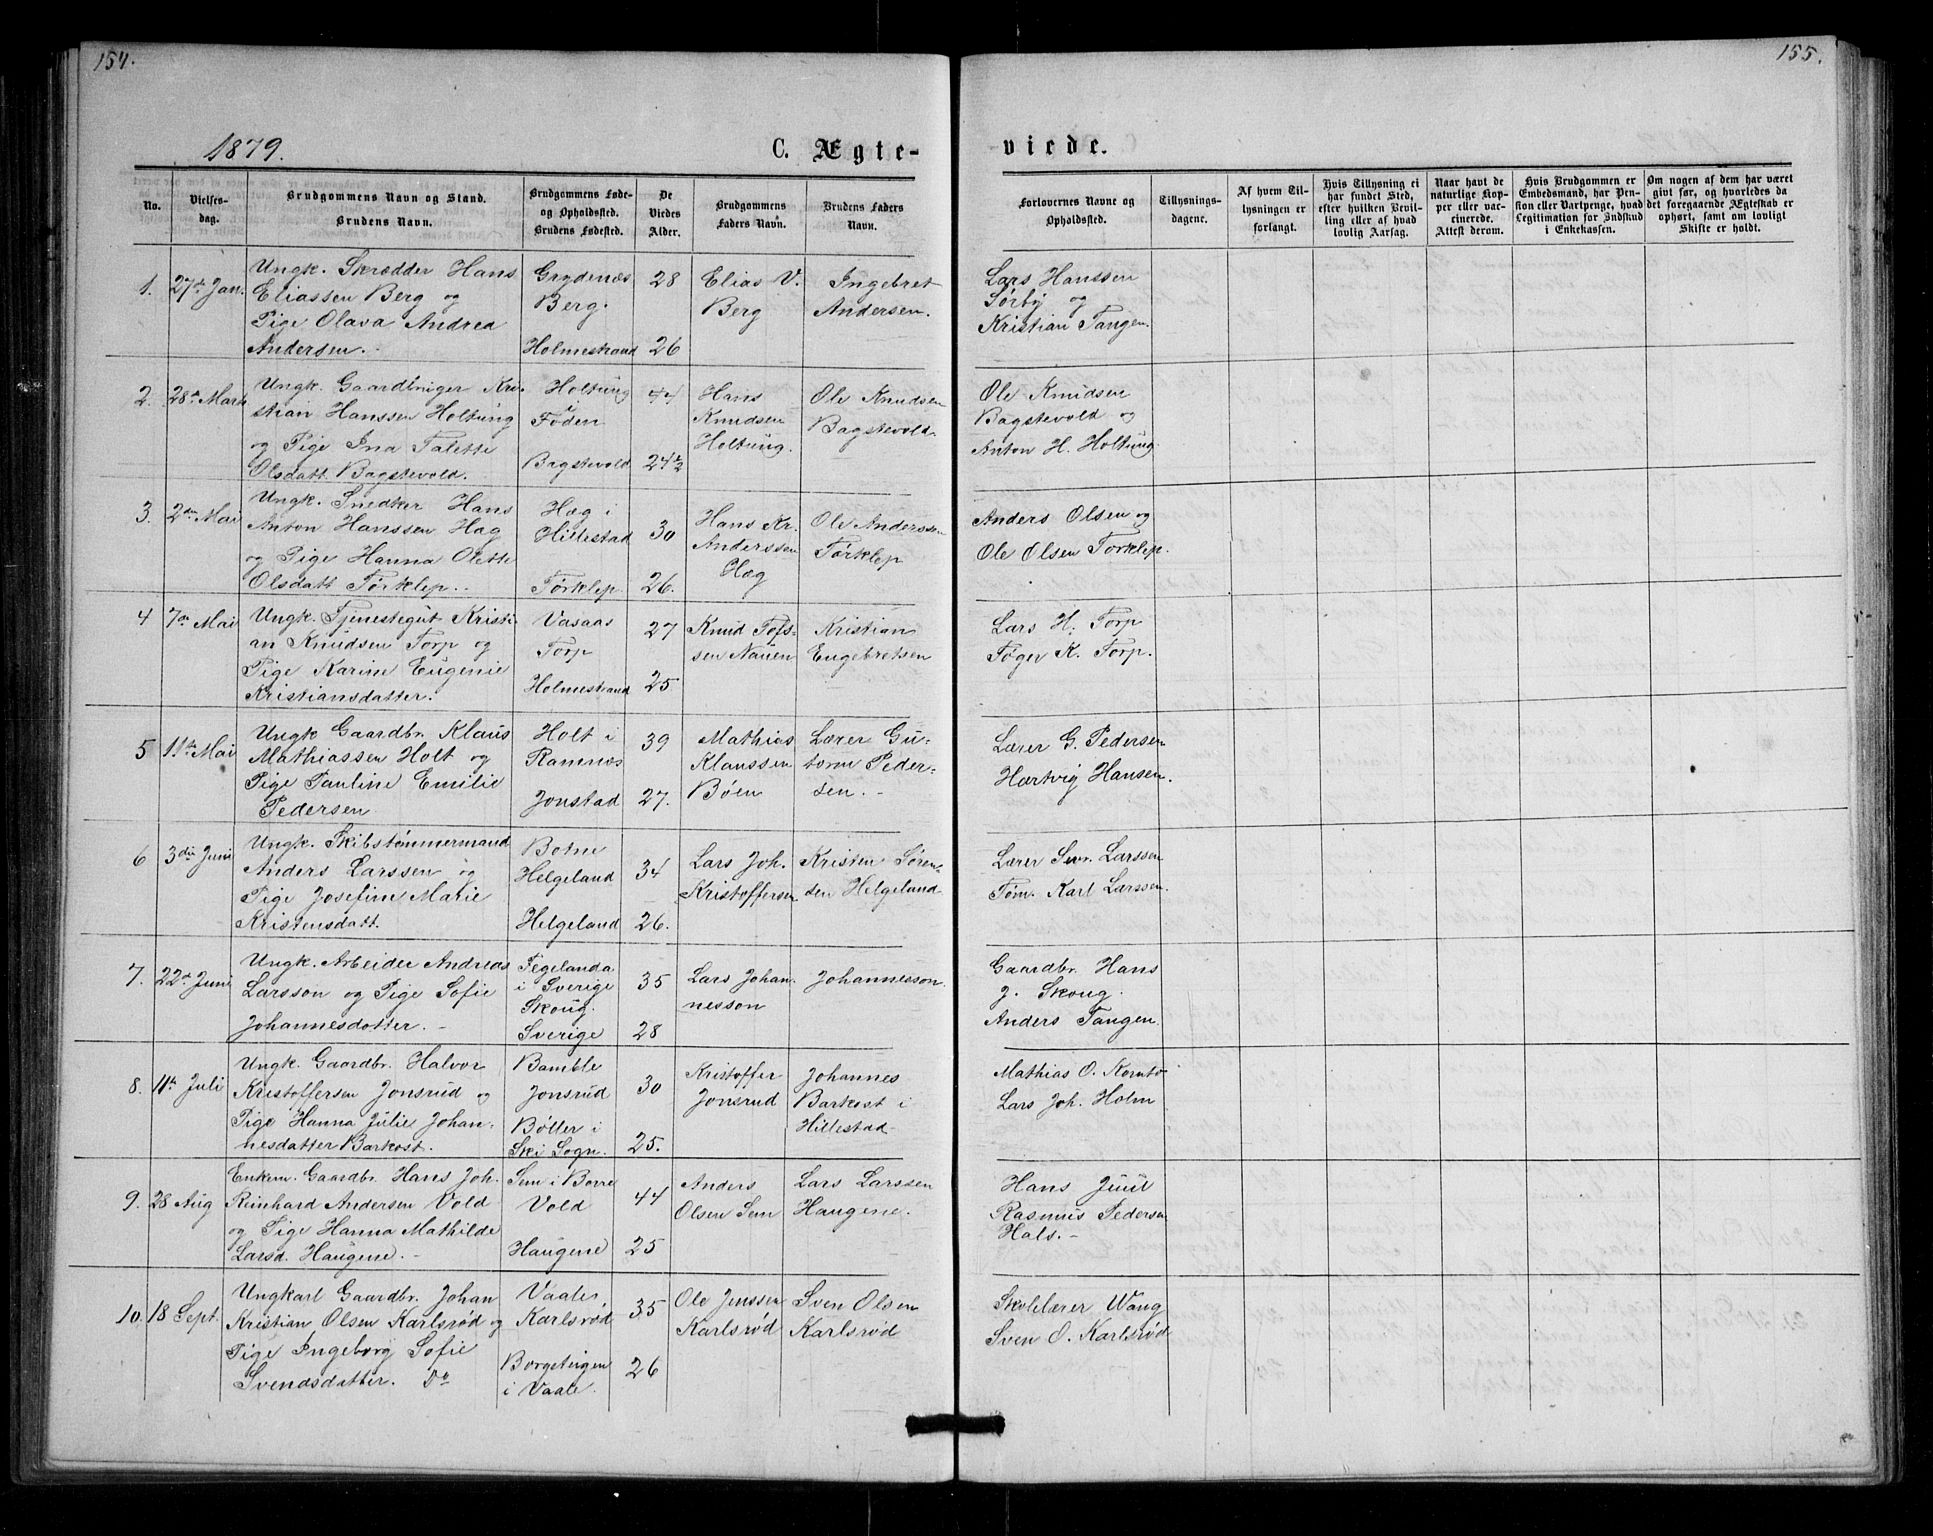 154.
155.
1879.
C. Ægte-
viede.
No.
Vielses-
dag.
Brudgommens Navn og Stand.
Brudens Navn.
Brudgommens Føde-
og Opholdssted.
Brudens Fødested.
De
Viedes
Alder.
Brudgommens
Faders Navn.
Brudens Faders
Navn.
Forlovernes Navne og
Opholdssted.
Tillysnings-
dagene.
Af hvem Til-
lysningen er
forlangt.
Hvis Tillysning ei
har fundet Sted,
efter hvilken Bevil-
ling eller af hvad
lovlig Aarsag.
Naar havt de
naturlige Kop-
per eller vac-
cinerede.
Attest derom.
Hvis Brudgommen er
Embedsmand, har Pen-
sion eller Vartpenge, hvad
Legitimation for Indskud
i Enkekassen.
Om nogen af dem har været
givt før, og hvorledes da
det foregaaende Ægteskab er
ophørt, samt om lovligt
Skifte er holdt.
1.
27de Jan.
Ungk. Skrædder Hans
Eliassen Berg og
Pige Olava Andrea
Andersen.
Grydenæs
Berg.
Holmestrand
28
26
Elias V.
Berg
Ingebret
Andersen.
Lars Hanssen
Sørby og
Kristian Tangen.
2.
28de Marts
Ungk. Gaardbruger Kri-
stian Hanssen Holtung
og Pige Ina Talette
Olsdatt. Bagstevold.
Holtung
Foden
Bagstevold
44
24½
Hans
Knudsen
Holtung.
Ole Knudsen
Bagstevold
Ole Knudsen
Bagstevold og
Anton H. Holtung.
3.
2den Mai
Ungk. Snedker Hans
Anton Hanssen Hæg
og Pige Hanna Olette
Olsdatt Torklep.
Hæg i
Hillestad
Torklep
30
26.
Hans Kr.
Anderssen
Hæg
Ole Anderssen
Torklep
Anders Olsen og
Ole Olsen Torklep.
4
7de Mai
Ungk. Tjenestegut Kristi-
an Knudsen Torp og
Pige Karine Eugenie
Kristiansdatter.
Vasaas
Torp
Holmestrand
27
25
Knud Tofs-
sen Nauen
Kristian
Engebretsen
Lars H. Torp
Toger K. Torp.
5
11te Mai
Ungk Gaardbr. Klaus
Mathiassen Holt og
Pige Pauline Emilie
Pedersen
Holt i
Ramnæs
Jonstad
39
27.
Mathias
Klaussen
Bøen
Lærer Gu-
torm Peder-
sen.
Lærer G. Pedersen
Hartvig Hansen.
6
3die Juni
Ungk. Skibstømmermand
Anders Larssen og
Pige Josefine Marie
Kristensdatt.
Botne
Helgeland
Helgeland
34
26.
Lars Joh.
Kristoffersen
Kristen Søren-
sen Helgeland
Lærer Sev. Larssen
Tøm. Karl Larssen.
7.
22de Juni
Ungk. Arbeider Andreas
Larsson og Pige Sofie
Johannesdotter.
Tegelanda
i Sverige
Skoug.
Sverige
35
28
Lars Johan-
nesson
Johannesson
Gaardbr. Hans
J. Skoug.
Anders Tangen.
8.
11te Juli
Ungk. Gaardbr. Halvor
Kristoffersen Jonsrud og
Pige Hanna Julie Johan-
nesdatter Barkost.
Bamble
Jonsrud
Bøller i
Ski Sogn.
30
25.
Kristoffer
Jonsrud
Johannes
Barkost i
Hillestad
Mathias O. Kornto
Lars Joh. Holm
9.
28 Aug
Enkem. Gaardbr. Hans Joh.
Reinhard Andersen Vold
og Pige Hanna Mathilde
Larsd. Haugene.
Sem i Borre
Vold
Haugene
44
25
Anders
Olsen Sem
Lars Larssen
Haugene.
Hans Juul
Rasmus Pedersen
Hals.
10.
18 Sept.
Ungkarl Gaardbr. Johan
Kristian Olsen Karlsrød og
Pige Ingeborg Sofie
Svendsdatter. Do
Vaale
Karlsrød
Borgeteigen
i Vaale.
35
26
Ole Jenssen
Karlsrød
Sven Olsen
Karlsrød
Skolelærer Wang
Sven O. Karlsrød